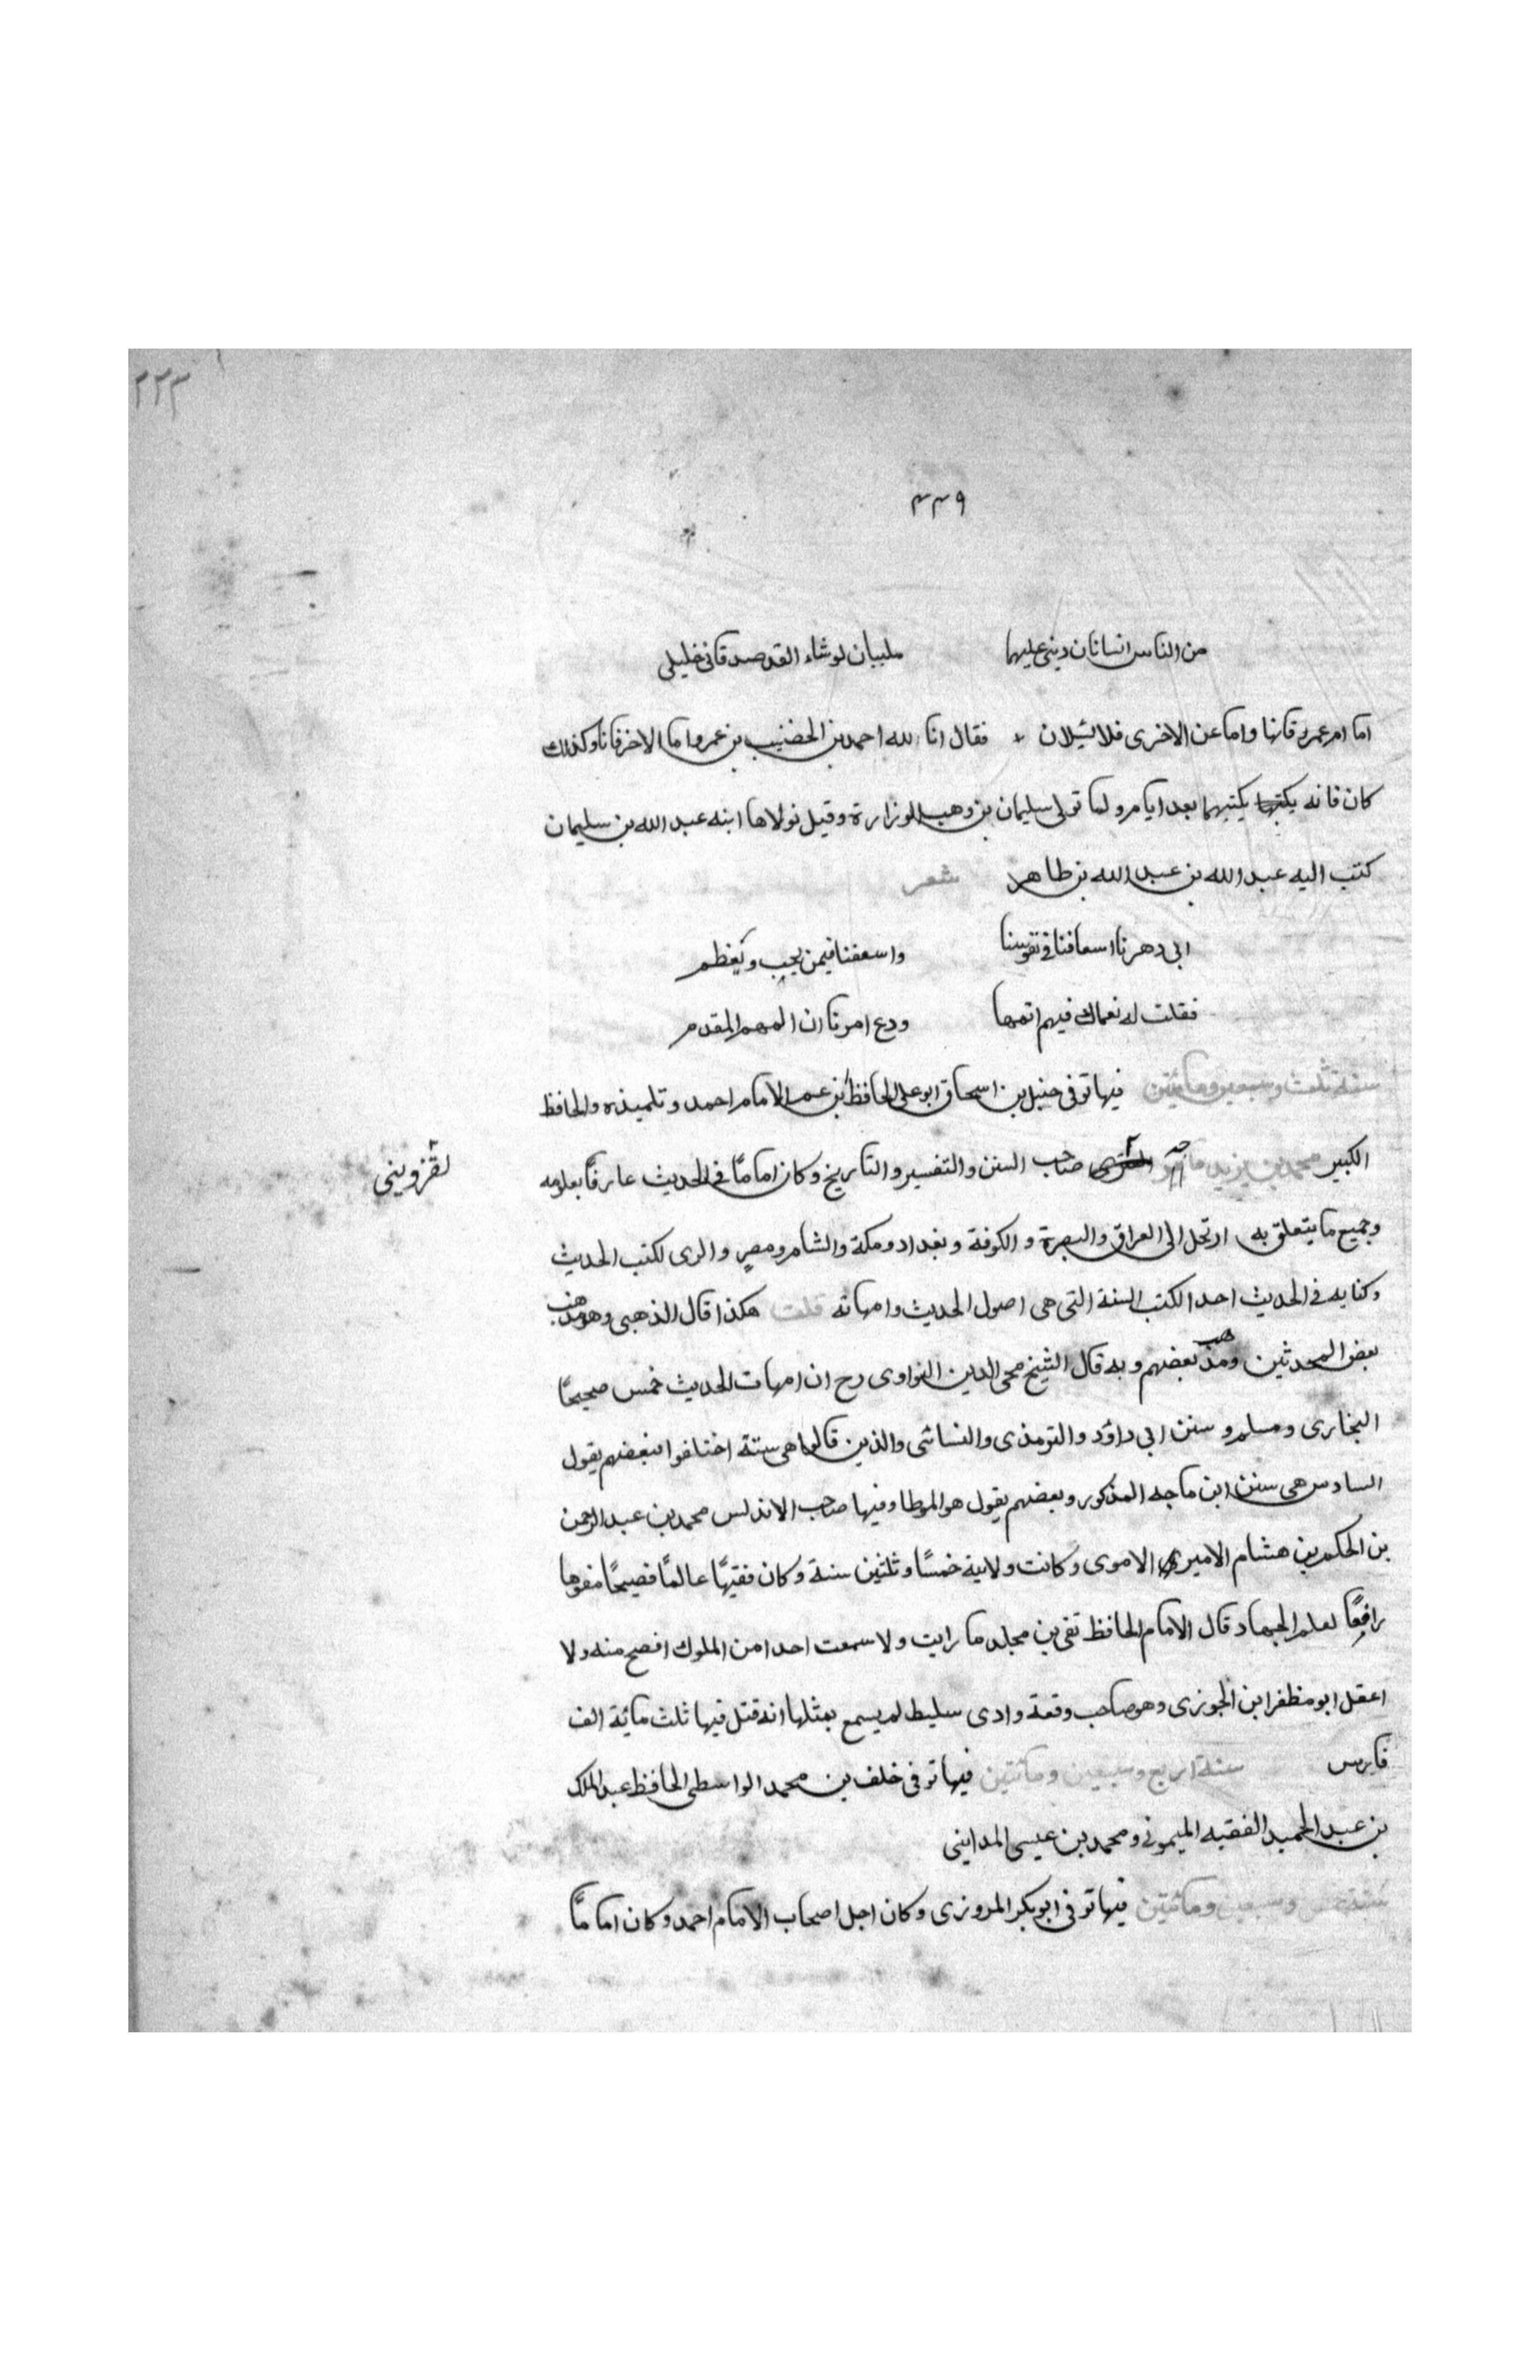 ٢٢٣
٤٣٩
من الناس انسانان ديني عليهما مليان لو شاء القد صدقاني خليلي
اما ام عمرو فانها واما عن الاخرى فلا تسئلان فقال انا لله احمد بن الخضيب بن عمر واما الاخر فانا وكذلك
كان فانه يكتبهما بعد ايام ولما تولى سليمان بن وهب الوزارة وقيل تولاها ابنه عبد الله بن سليمان
كتب اليه عبد الله بن عبد الله بن طاهر شعر
ابى دهرنا اسعافنا في نفوسنا واسعفنا فيمن يحب ويعظم
فقلت له نعماك فيهم اتمها ودع امرنا ان المهم المقدم
سنة ثلث وسبعين ومائتين فيها توفى حنبل بن اسحاق ابو على الحافظ بن عم الامام احمد وتلميذه والحافظ
الكبير محمد بن يزيد ماجه صاحب السنن والتفسير والتاريخ وكان اماما في الحديث عارفا بعلومه
لقزويني
وجميع ما يتعلق به ارتحل الى العراق والبصرة والكوفة وبغداد ومكة والشام ومصر والرى لكتب الحديث
وكتابه في الحديث احد الكتب الستة التى هى اصول الحديث وامهاته قلت هكذا قال الذهبى وهو مذهب
بعض المحدثين ومذهب بعضهم وبه قال الشيخ محى الدين النواوى رح ان امهات الحديث خمس صحيحا
البخارى ومسلم و سنن ابى داؤد والترمذى والنسائى والذين قالوا هى ستة اختلفوا فبعضهم يقول
السادس هى سنن ابن ماجه المذكور وبعضهم يقول هو الموطا وفيها صاحب الاندلس محمد بن عبد الرحمن
بن الحكم بن هشام الامير الاموى وكانت ولايته خمسًا وثلثين سنة وكان فقيهًا عالمًا فصيحًا مفوها
رافعًا لعلم الجهاد قال الامام الحافظ تقى بن مجلد ما رايت ولا سمعت احدا من الملوك افصح منه ولا
اعقل ابو مظفر ابن الجوزى وهو صاحب وقعة وادى سليط لم يسمع بمثلها انه قتل فيها ثلث مائة الف
فارس سنة اربع وسبعين ومائتين فيها توفى خلف بن محمد الواسطى الحافظ عبد الملك
بن عبد الحميد الفقيه الميمونى ومحمد بن عيسى المداينى
سنة خمس وسبعين ومائتين فيها توفى ابو بكر المروزى وكان اجل اصحاب الامام احمد وكان امامًا